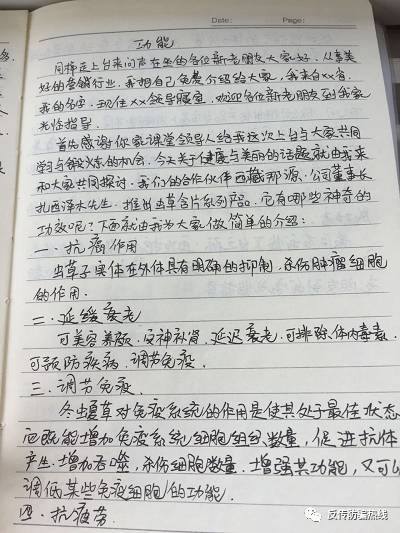 Date:
Page:
功能
同样走上台来问声在坐的各位新老朋友大家好，从事美
好的营销行业，我把自己免费介绍给大家，我来自xx省，
我的名字，现住xx领导寝室，欢迎各位新老朋友到我家
光临指导。
首先感谢你家课堂领导人给我这次上台与大家共同
学习与锻炼的机会，今天关于健康与美丽的话题就由我来
和大家共同探讨，我们的合作伙伴西藏那源公司董事长
扎西泽木先生，推出虫草含片系列产品，它有哪些神奇的
功效呢？下面就由我为大家做简单的介绍：
一、抗癌作用
虫草子实体在外体具有明确的抑制，杀伤肿瘤细胞
的作用。
二、延缓衰老
可美容养颜，安神补肾，延迟衰老，可排除体内毒素，
可预防疾病，调节免疫。
三、调节免疫
冬虫夏草对免疫系统的作用是使其处于最佳状态
它既能增加免疫系统细胞组织数量，促进抗体
产生，增加吞噬，杀伤细胞数量，增强其功能，又可以
调低某些免疫细胞的功能。
四、抗疲劳
反传防骗热线